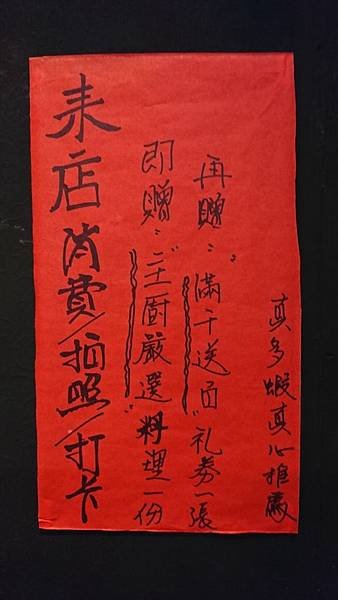 来店消費/拍照/打卡
即贈："二主廚嚴選"料理一份
再贈："滿千送百"礼劵一張
真多蝦真心推薦